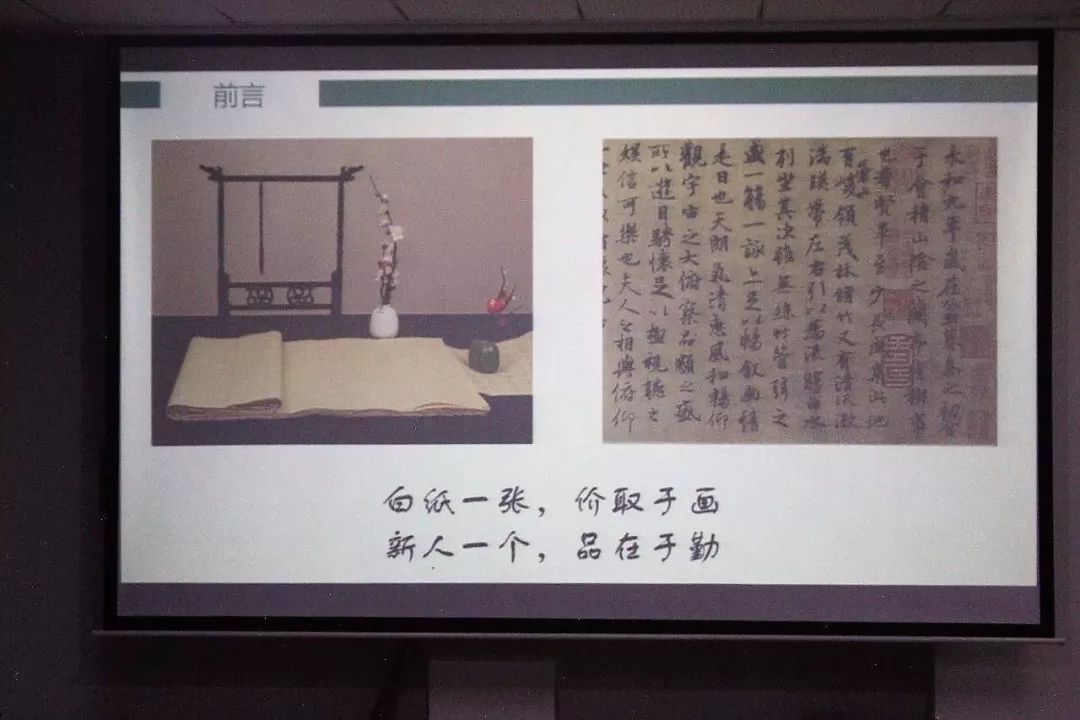 前言
永和九年歲在癸丑暮春之初會
于會稽山陰之蘭亭脩稧事
也羣賢畢至少長咸集此地
有崇山峻領茂林脩竹又有清流激
湍暎帶左右引以為流觴曲水
列坐其次雖無絲竹管弦之
盛一觴一詠亦足以暢敘幽情
是日也天朗氣清惠風和暢仰
觀宇宙之大俯察品類之盛
所以遊目騁懷足以極視聽之
娛信可樂也夫人之相與俯仰
白纸一张，价取于画
新人一个，品在于勤